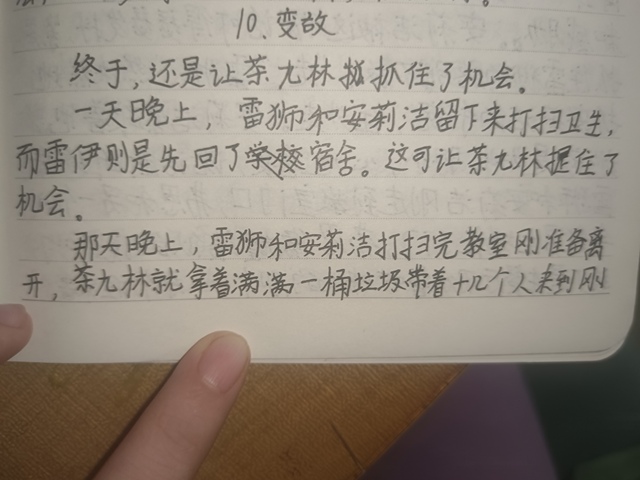 10.变故
终于,还是让茶九林抓住了机会。
一天晚上,雷狮和安莉洁留下来打扫卫生,
而雷伊则是先回了宿舍。这可让茶九林握住了
机会。
那天晚上,雷狮和安莉洁打扫完教室刚准备离
开,茶九林就拿着满满一桶垃圾带着十几个人来到刚